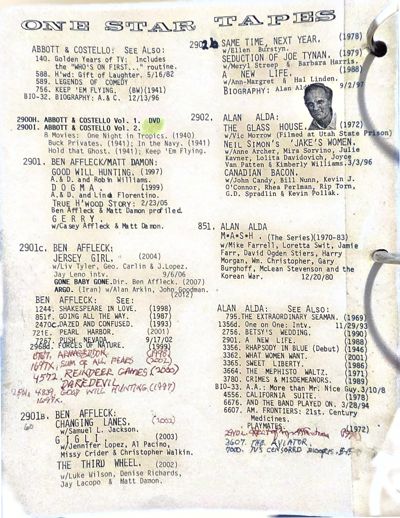 ONE STAR TAPES
ABBOTT & COSTELLO: SEE ALSO:
140. Golden Years of TV: Includes
the "WHO'S ON FIRST..." routine.
588. H'wd: Gift of Laughter. 5/16/82
589. LEGENDS OF COMEDY
756. KEEP 'EM FLYING. (BW)(1941)
BIO-32. BIOGRAPHY: A.& C. 12/13/96
2900H. ABBOTT & COSTELLO Vol. 1. DVD
2900I. ABBOTT & COSTELLO Vol. 2.
8 Movies: One Night in Tropics. (1940)
Buck Privates. (1941); In the Navy. (1941)
Hold that Ghost. (1941); Keep 'Em Flying.
2901. BEN AFFLECK/MATT DAMON:
GOOD WILL HUNTING. (1997)
A.& D. and Robin Williams.
D O G M A . (1999)
A.& D. and Linda Fiorentino.
TRUE H'WOOD STORY: 2/23/05
Ben Affleck & Matt Damon profiled.
G E R R Y .
w/Casey Affleck & Matt Damon.
2901c. BEN AFFLECK:
JERSEY GIRL. (2004)
w/Liv Tyler, Geo. Carlin & J.Lopez.
Jay Leno intv. 9/6/06
GONE BABY GONE.Dir. Ben Affleck. (2007)
ARGO. (Iran) w/Alan Arkin, John Goodman.
(2012)
BEN AFFLECK: SEE:
1244. SHAKESPEARE IN LOVE. (1998)
851f. GOING ALL THE WAY. (1997)
2470C.DAZED AND CONFUSED. (1993)
721E. PEARL HARBOR. (2001)
7287. PUSH, NEVADA. 9/17/02
2968b. FORCES OF NATURE. (1999)
ARMAGEDDON. (1998)
1677X. SUM OF ALL FEARS (2002)
4572 REINDEER GAMES (2000)
DAREDEVIL
4839. GOOD WILL HUNTING. (1997)
2901B. BEN AFFLECK:
CHANGING LANES. (2002)
w/Samuel L. Jackson.
G I G L I . (2003)
w/Jennifer Lopez, Al Pacino,
Missy Crider & Christopher Walkin.
THE THIRD WHEEL. (2002)
w/Luke Wilson, Denise Richards,
Jay Lacopo & Matt Damon.
2902b SAME TIME, NEXT YEAR. (1978)
w/Ellen Burstyn.
SEDUCTION OF JOE TYNAN. (1979)
w/Meryl Streep & Barbara Harris.
A NEW LIFE. (1988)
w/Ann-Margret & Hal Linden.
BIOGRAPHY: Alan Alda 9/2/97
2902. ALAN ALDA:
THE GLASS HOUSE. (1972)
w/Vic Morrow (Filmed at Utah State Prison)
NEIL SIMON'S 'JAKE'S WOMEN.
w/Anne Archer, Mira Sorvino, Julie
Kavner, Lolita Davidovich, Joyce
Van Patten & Kimberly Williams.3/3/96
CANADIAN BACON.
w/John Candy, Bill Nunn, Kevin J.
O'Connor, Rhea Perlman, Rip Torn,
G.D. Spradlin & Kevin Pollak.
851. ALAN ALDA
M*A*S*H . (The Series)(1970-83)
w/Mike Farrell, Loretta Swit, Jamie
Farr, David Ogden Stiers, Harry
Morgan, Wm. Christopher, Gary
Burghoff, McLean Stevenson and the
Korean War. 12/20/80
ALAN ALDA: SEE ALSO:
795.THE EXTRAORDINARY SEAMAN. (1969)
1356d. One on One: Intv. 11/29/93
2756. BETSY'S WEDDING. (1990)
2901. A NEW LIFE. (1988)
3356. RHAPSODY IN BLUE (Debut) (1946)
3362. WHAT WOMEN WANT. (2001)
3365. SWEET LIBERTY. (1986)
3664. THE MEPHISTO WALTZ. (1971)
3780. CRIMES & MISDEMEANORS. (1989)
BIO-33. A.A.: More than Mr. Nice Guy.3/10/8
4556. CALIFORNIA SUITE. (1978)
6676. AND THE BAND PLAYED ON. 3/28/94
6607. AM. FRONTIERS: 21st. Century
Medicines.
PLAYMATES. (1972)
3607. THE AVIATOR.
TV'S CENSORED BLOOPERS.